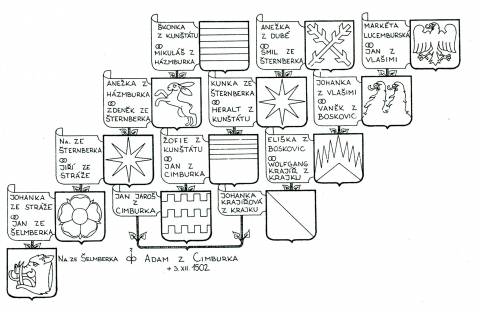 ŠKONKA Z
KUNŠTÁTU
MIKULÁŠ Z
HÁZMBURKA
ANEŽKA Z
DUBÉ
SMIL ZE
ŠTERNBERKA
MARKÉTA
LUCEMBURSKÁ
JAN Z
VLAŠIMI
ANEŽKA Z
HÁZMBURKA
ZDENĚK ZE
ŠTERNBERKA
KUNKA ZE
ŠTERNBERKA
HERALT Z
KUNŠTÁTU
JOHANKA
Z VLAŠIMI
VANĚK Z
BOSKOVIC
NA. ZE
ŠTERNBERKA
JIŘÍ ZE
STRÁŽE
ŽOFIE Z
KUNŠTÁTU
JAN Z
CIMBURKA
ELIŠKA Z
BOSKOVIC
WOLFGANG
KRAJÍŘ Z
KRAJKU
JOHANKA
ZE STRÁŽE
JAN ZE
ŠELMBERKA
JAN JAROŠ
Z
CIMBURKA
JOHANKA
KRAJÍŘOVÁ
Z KRAJKU
NA ZE ŠELMBERKA ADAM Z CIMBURKA
+ 3. XII. 1502